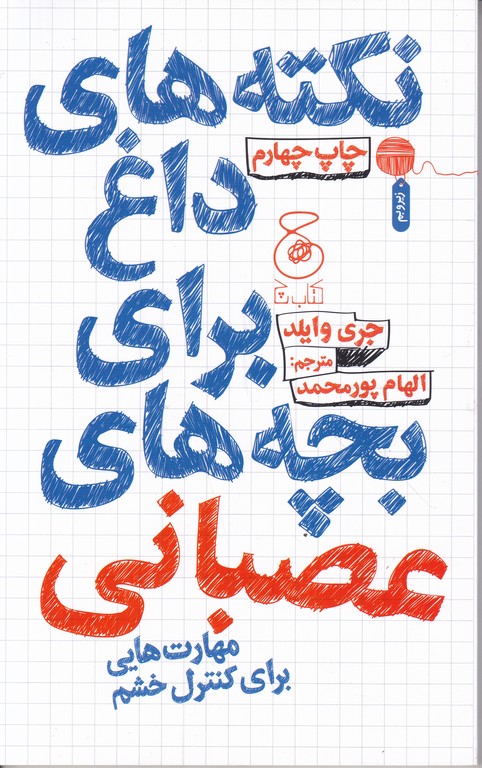 نکته‌های
چاپ چهارم
زیر و بم
داغ
کتاب چ
برای
جری وایلد
مترجم:
الهام پورمحمد
بچه‌های
عصبانی
مهارت‌هایی
برای کنترل خشم